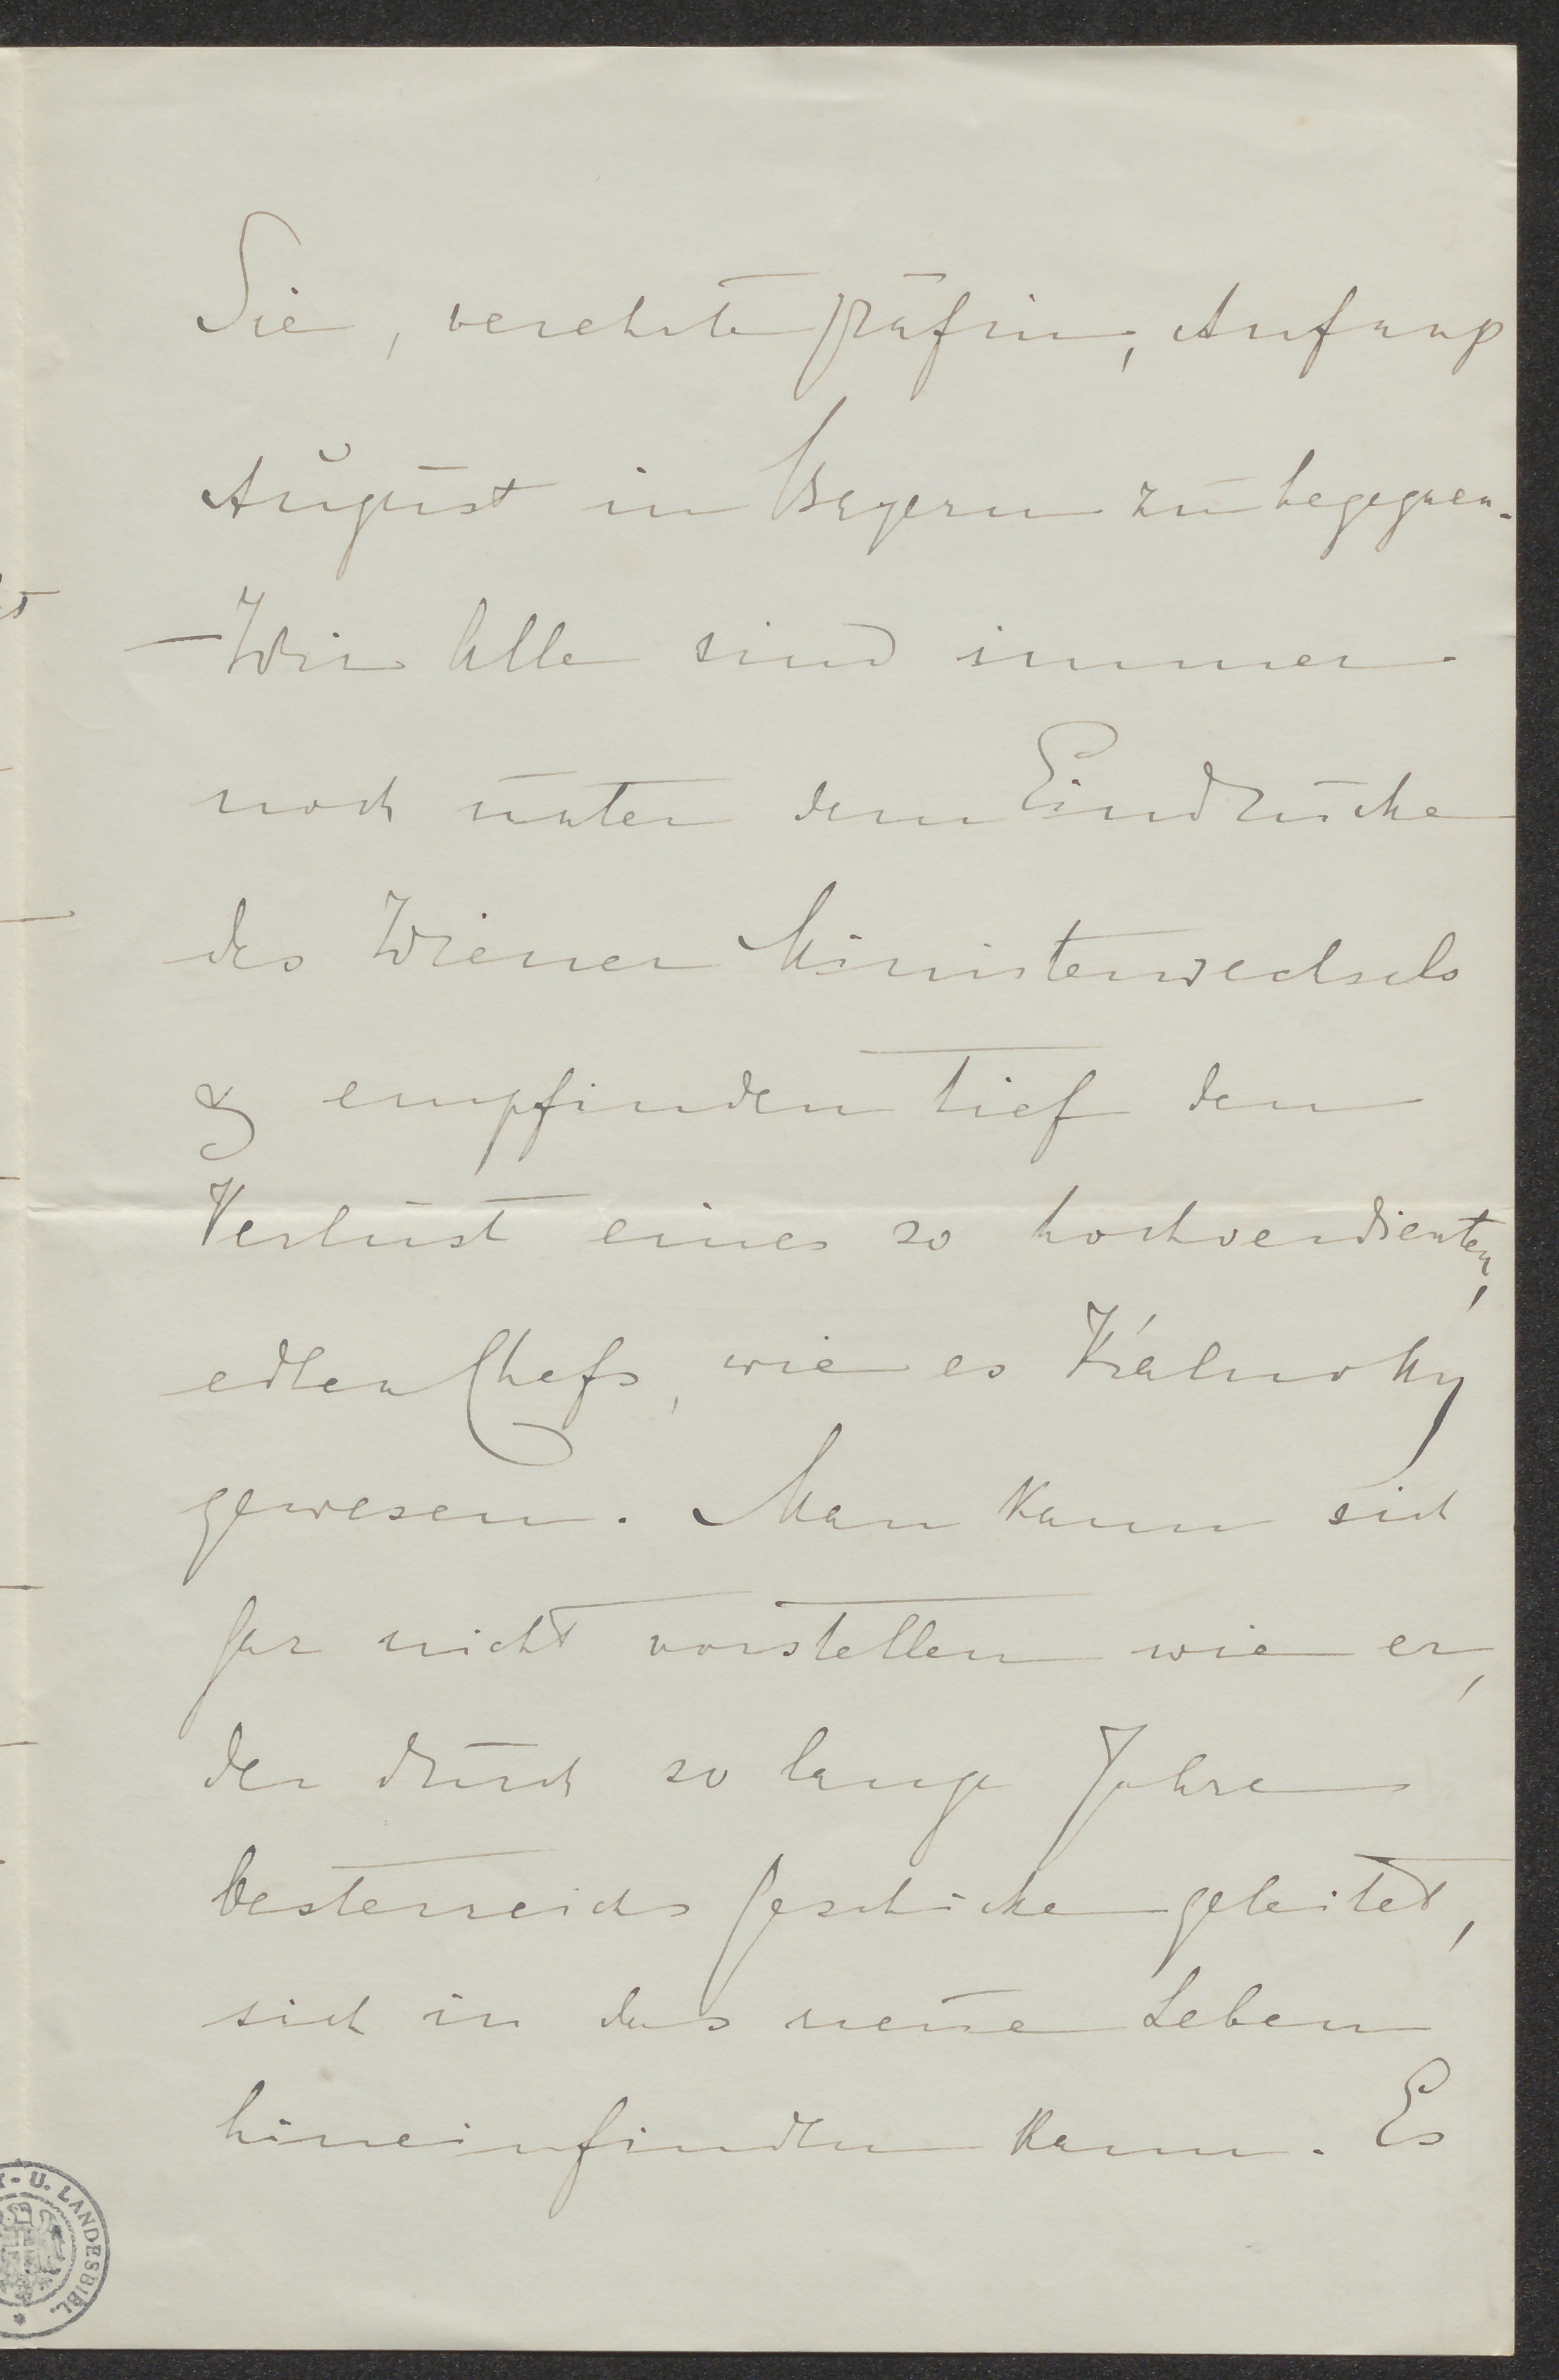 Sie, verehrte Gräfin, Anfang
August in Bayern zu begegnen.
– Wir Alle sind immer
noch unter dem Eindrucke
des Wiener Ministerwechsels
& empfinden tief den
Verlust eines so hochverdienten,
edlen Chefs, wie es Kálnoky
gewesen. Man kann sich
gar nicht vorstellen wie er,
der durch so lange Jahre
Oesterreichs Geschicke geleitet,
sich in das neue Leben
hineinfinden kann. Es
U. LANDESBIBL.